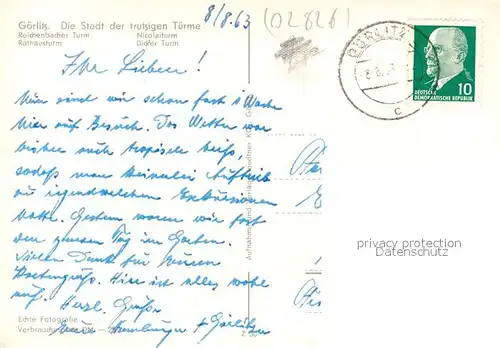 Görlitz. Die Stadt der trutzigen Türme
Reichenbacher Turm Nicolaiturm
Rathausturm Dicker Turm
8/8.63 (02826)
GÖRLITZ
8.8.63
c
10
DEUTSCHE
DEMOKRATISCHE REPUBLIK
Ihr Lieben!
Nun sind wir schon fast 1 Woche
hier auf Besuch. Das Wetter war
bisher auch tropisch heiß,
sodaß man keinerlei Auftrieb
zu irgendwelchen Exkursionen
hatte. Gestern waren wir fast
den ganzen Tag im Garten.
Vielen Dank für Euren
Kartengruß. Hier ist alles wohl
auf. Herzl. Grüße
Eure Hamburger + Görlitzer
Echte Fotografie
privacy protection
www.oldthing.de